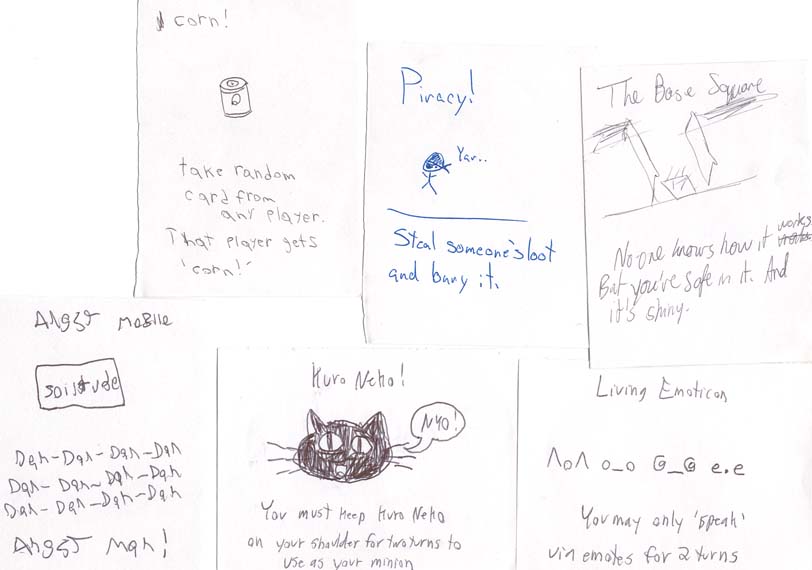 corn!
take random
card from
any player.
That player gets
'corn!'
Piracy!
Yar..
Steal someone's loot
and bury it.
The Base Square
No one knows how it works
But you're safe in it. And
it's shiny.
Angst Mobile
Dan-Dan-Dan-Dan
Dan-Dan-Dan-Dan
Dan-Dan-Dan-Dan
Angst Man!
Kuro Neko!
NYO!
You must keep Kuro Neko
on your shoulder for two turns to
use as your minion
Living Emoticon
^o^ o_o @_@ e.e
You may only 'speak'
via emotes for 2 turns